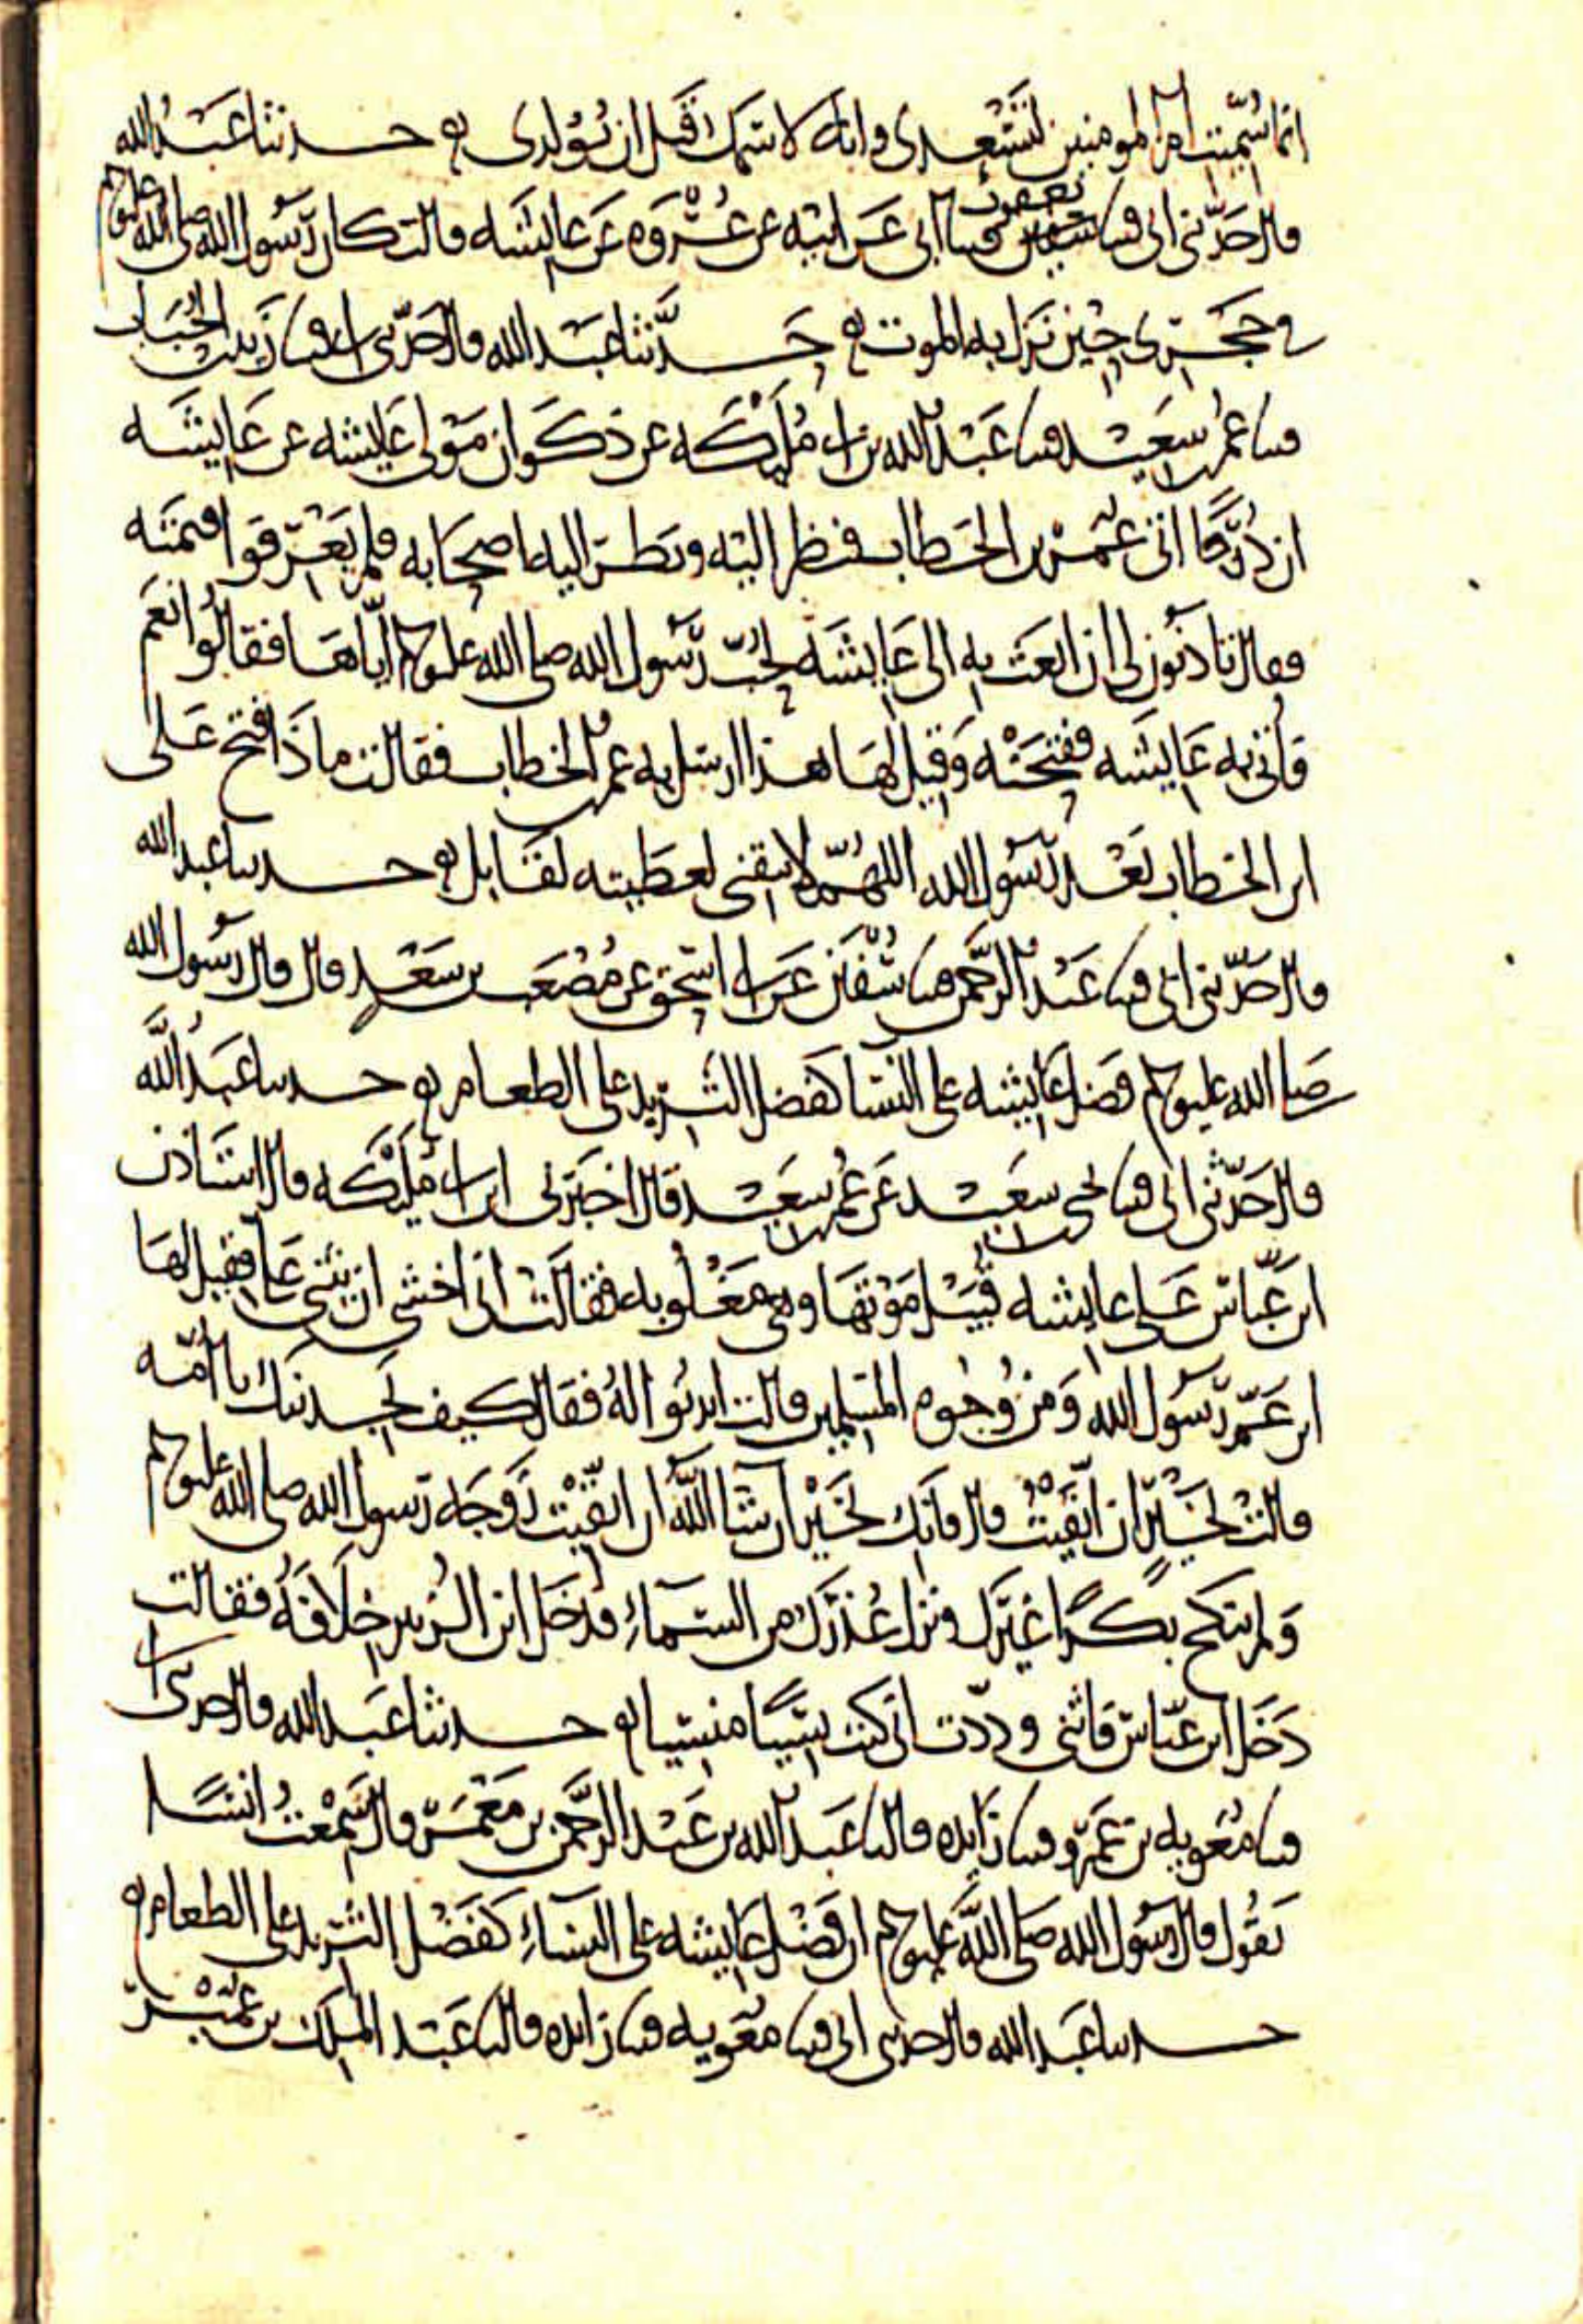 انما سميت ام المومنين لتسعدى وانه لاسمك قبل ان تولدى حدثنا عبد الله
قال حدثنى ابى قثنا يعقوب قثنا ابى عن ابيه عن عروه عن عايشه قالت كان رسول الله صلى الله عليه وسلم
فى حجرى حين نزل به الموت حدثنا عبد الله قال حدثنى ابى قثنا زيد بن الحباب
قثنا عمر بن سعيد قثنا عبد الله بن ابى مليكه عن ذكوان مولى عايشه عن عايشه
ان درجا اتى عمر بن الخطاب فنظر اليه ونظر اليه اصحابه فلم يعرفوا قيمته
فقال تاذنون لى ان ابعث به الى عايشه لحب رسول الله صلى الله عليه وسلم اياها فقالوا نعم
فاتى به عايشه ففتحته وقيل لها هذا ارسل به عمر بن الخطاب فقالت ماذا فتح على
ابن الخطاب بعد رسول الله اللهم لا تبقنى لعطيته لقابل حدثنا عبد الله
قال حدثنى ابى قثنا عبد الرحمن قثنا سفين عن ابى اسحق عن مصعب بن سعد قال قال رسول الله
صلى الله عليه وسلم فضل عايشه على النسا كفضل الثريد على الطعام حدثنا عبد الله
قال حدثنى ابى قثنا يحيى بن سعيد عن عمر بن سعيد قال اخبرنى ابن ابى مليكه قال استاذن
ابن عباس على عايشه قبيل موتها وهى مغلوبه فقالت انى اخشى ان يثنى على فقيل لها
ابن عم رسول الله ومن وجوه المسلمين قالت ايذنوا له فقال كيف تجدينك يا امه
قالت بخير ان اتقيت قال فانك بخير ان شا الله ان اتقيت زوجه رسول الله صلى الله عليه وسلم
ولم ينكح بكرا غيرك ونزل عذرك من السماء فدخل ابن الزبير خلافه فقالت
دخل ابن عباس فاثنى وددت انى كنت نسيا منسيا حدثنا عبد الله قال حدثنى ابى
قثنا معويه بن عمرو قثنا زايده قال ثنا عبد الله بن عبد الرحمن بن معمر قال سمعت انسا
يقول قال رسول الله صلى الله عليه وسلم ان فضل عايشه على النساء كفضل الثريد على الطعام
حدثنا عبد الله قال حدثنى ابى قثنا معويه قثنا زايده قال ثنا عبد الملك بن عمير